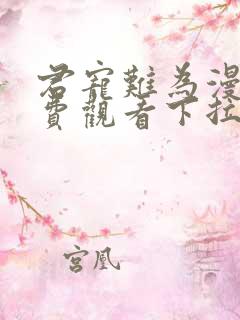 君寵難為漫
費觀看下拉
宮凰